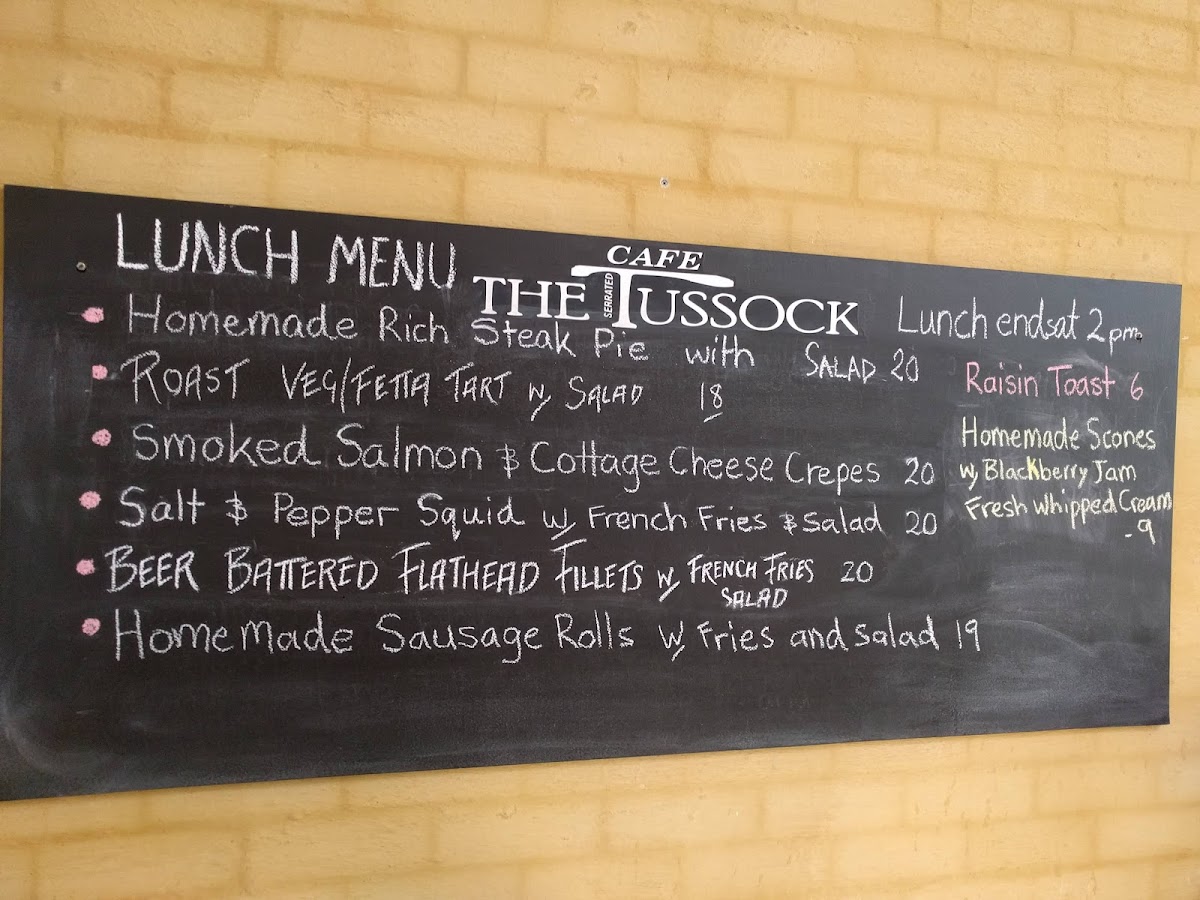 LUNCH MENU
CAFE
THE SERRATED TUSSOCK
Lunch ends at 2pm
Homemade Rich Steak Pie with SALAD 20
ROAST VEG/FETTA TART w/ SALAD 18
Smoked Salmon & Cottage Cheese Crepes 20
Salt & Pepper Squid w/ French Fries & Salad 20
BEER BATTERED FLATHEAD FILLETS w/ FRENCH FRIES 20
SALAD
Homemade Sausage Rolls w/ Fries and Salad 19
Raisin Toast 6
Homemade Scones
w/ Blackberry Jam
Fresh Whipped Cream
- 9